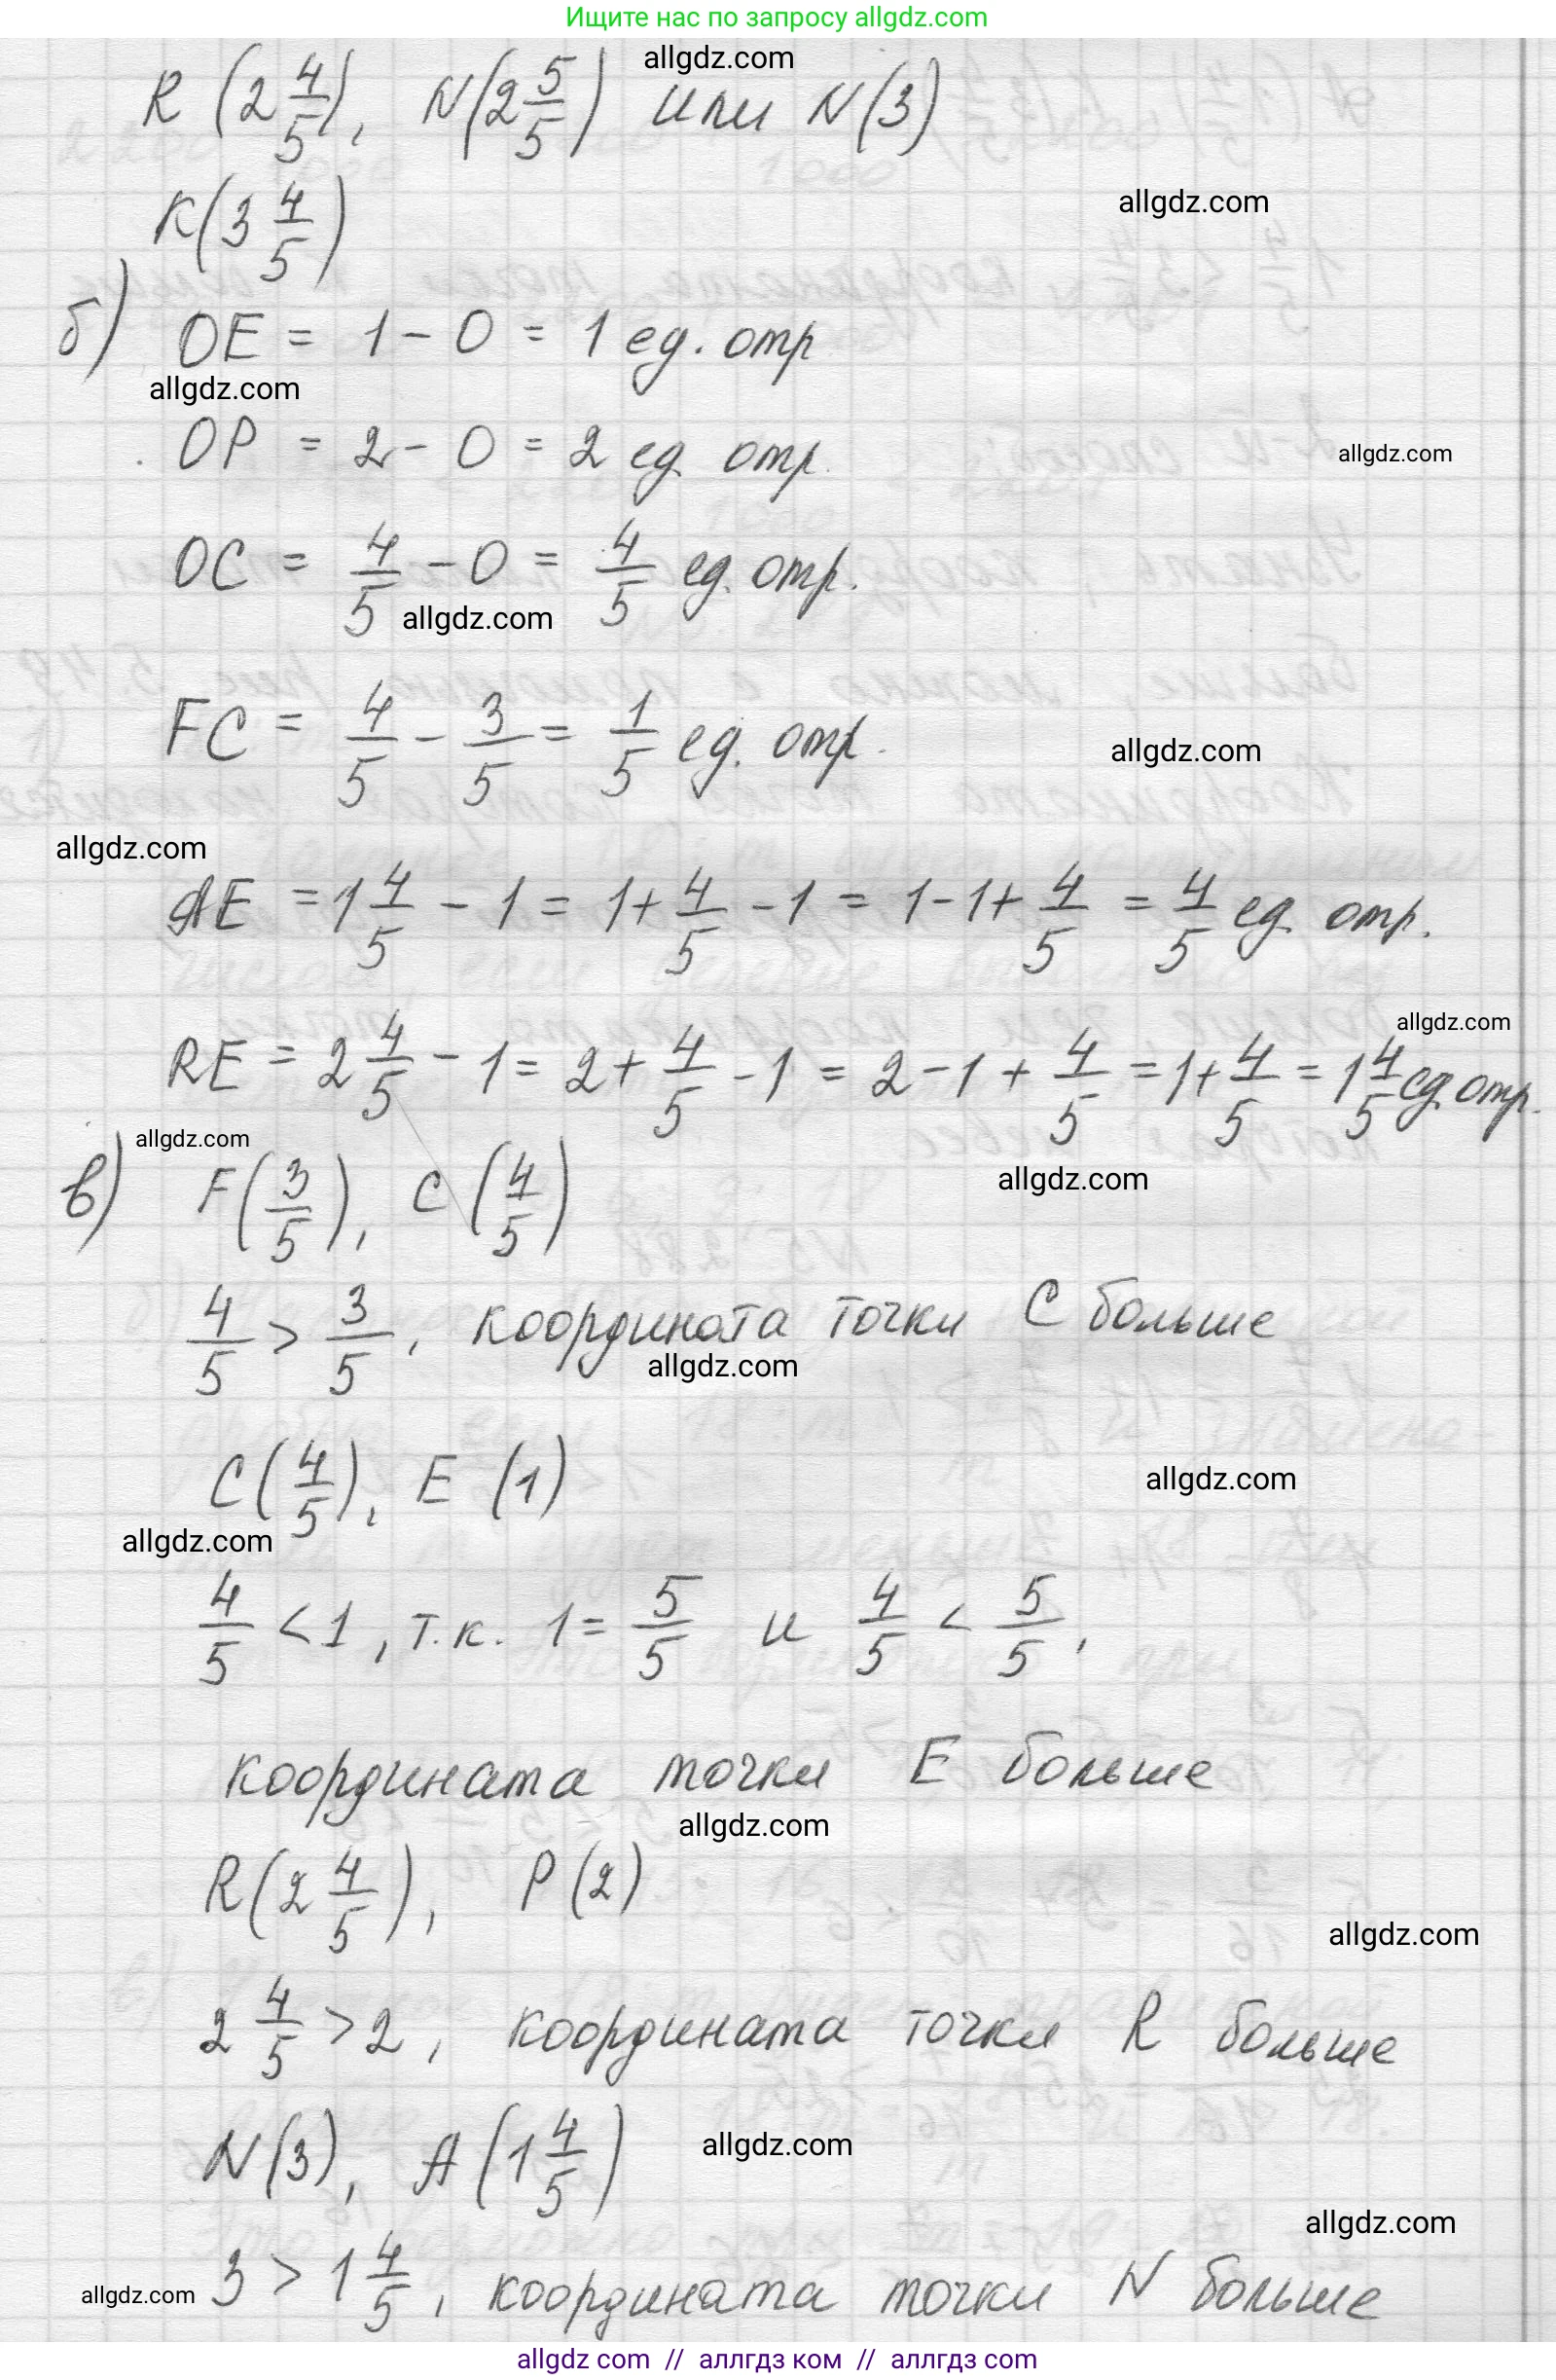 Ищите нас по запросу allgdz.com
allgdz.com
R (2 4/5), N(2 5/5) или N(3)
allgdz.com
K(3 4/5)
б) OE = 1 - 0 = 1 ед. отр
allgdz.com
OP = 2 - 0 = 2 ед отр.
allgdz.com
OC = 4/5 - 0 = 4/5 ед. отр.
allgdz.com
FC = 4/5 - 3/5 = 1/5 ед. отр.
allgdz.com
allgdz.com
AE = 1 4/5 - 1 = 1 + 4/5 - 1 = 1 - 1 + 4/5 = 4/5 ед отр.
allgdz.com
RE = 2 4/5 - 1 = 2 + 4/5 - 1 = 2 - 1 + 4/5 = 1 + 4/5 = 1 4/5 ед отр.
allgdz.com
в) F(3/5), C(4/5)
allgdz.com
4/5 > 3/5, координата точки C больше
allgdz.com
C(4/5), E (1)
allgdz.com
allgdz.com
4/5 < 1, т.к. 1 = 5/5 и 4/5 < 5/5,
координата точки E больше
allgdz.com
R(2 4/5), P(2)
allgdz.com
2 4/5 > 2, координата точки R больше
N(3), A(1 4/5)
allgdz.com
allgdz.com
3 > 1 4/5, координата точки N больше
allgdz.com
allgdz com // аллгдз ком // аллгдз com